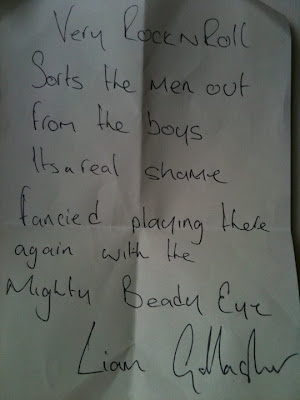 Very Rock N Roll
Sorts the men out
from the boys
Its a real shame
fancied playing there
again with the
Mighty Beady Eye
Liam Gallagher